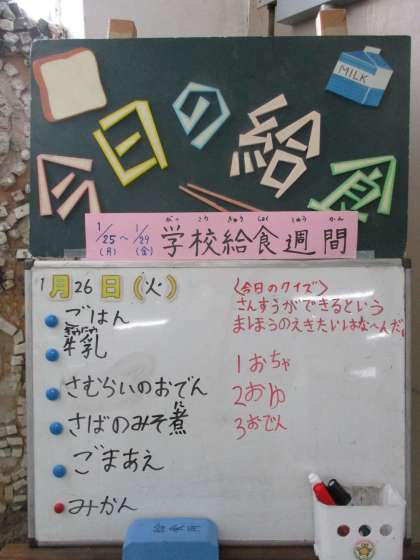 今日の給食
MILK
1/25(月)~1/29(金) 学校給食週間
がっこうきゅうしょくしゅうかん
1月26日(火)
ごはん
ぎゅうにゅう
牛乳
さむらいのおでん
さばのみそ煮
に
ごまあえ
みかん
〈今日のクイズ〉
さんすうができるという
まほうのえきたいはな~んだ。
1おちゃ
2おゆ
3おでん